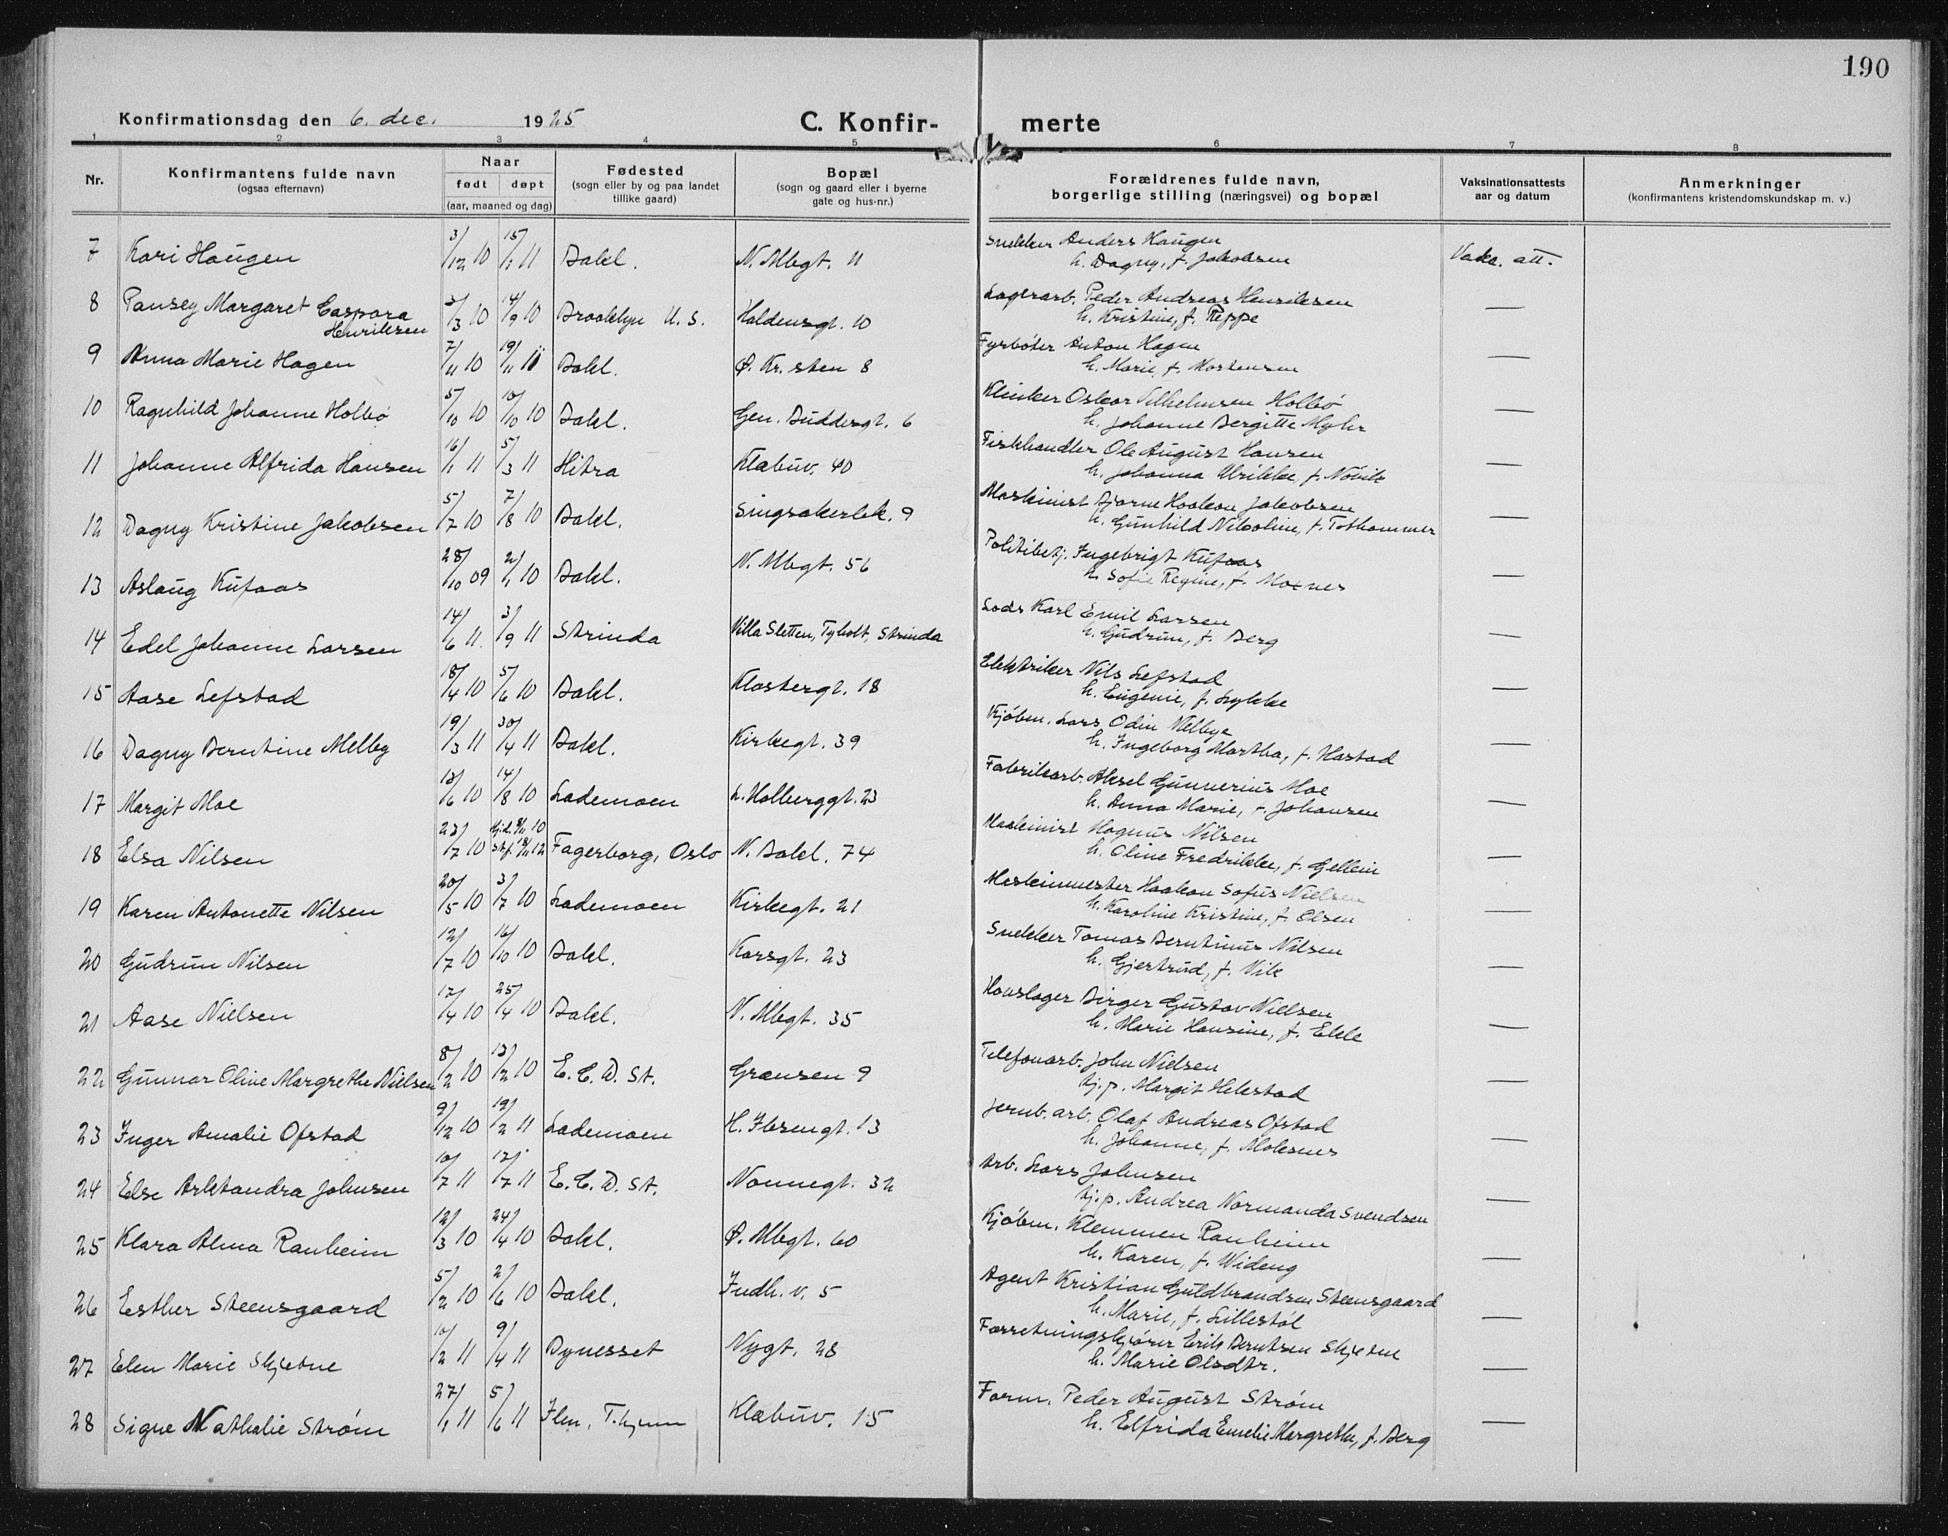 190
Konfirmationsdag den 6. dec. 1925
C. Konfir-merte
1 2 3 4 5 6 7 8
Nr.
Konfirmantens fulde navn
(ogsaa efternavn)
Naar
født døpt
(aar, maaned og dag)
Fødested
(sogn eller by og paa landet
tillike gaard)
Bopæl
(sogn og gaard eller i byerne
gate og hus-nr.)
Forældrenes fulde navn,
borgerlige stilling (næringsvei) og bopæl
Vaksinationsattests
aar og datum
Anmerkninger
(konfirmantens kristendomskundskap m. v.)
7 Kari Haugen 3/12 10 15/1 11 Bakl. N. Mbgt. 11 Snekker Anders Haugen Vakc. att.
h. Dagny, f. Jakobsen
8 Pansey Margaret Caspara 3/3 10 14/9 10 Brooklyn U. S. Haldensgt. 10 Lagerarb. Peder Andreas Henriksen —
Henriksen h. Kristine, f. Reppe
9 Anna Marie Hagen 7/11 10 19/11 11 Bakl. Ø. Kr. sten 8 Fyrbøter Anton Hagen —
h. Marie, f. Mortensen
10 Ragnhild Johanne Holbø 5/10 10 10/10 10 Bakl. Gen. Buddesgt. 6 Klinker Oskar Vilhelmsen Holbø —
h. Johanne Bergitte Myhr
11 Johanne Alfrida Hansen 16/1 11 5/3 11 Hitra Klæbuv. 40 Fiskhandler Ole August Hansen —
h. Johanna Ulrikke, f. Nøvik
12 Dagny Kristine Jakobsen 5/7 10 7/8 10 Bakl. Singsakerbk. 9 Maskinist Bjarne Haakon Jakobsen —
h. Gunhild Nikoline, f. Tothammer
13 Aslaug Kufaas 28/10 09 2/1 10 Bakl. N. Mbgt. 56 Politibetj. Ingebrigt Kufaas —
h. Sofie Regine, f. Moxnes
14 Edel Johanne Larsen 14/6 11. 3/9 11 Strinda Villa Sletten, Tyholt, Strinda Lods Karl Emil Larsen —
h. Gudrun, f. Berg
15 Aase Lefstad 18/4 10 5/6 10 Bakl. Klostergt. 18 Elektriker Nils Lefstad —
h. Eugenie, f. Lykke
16 Dagny Berntine Melby 19/3 11 30/4 11 Bakl. Kirkegt. 39 Kjøbm. Lars Odin Melbye —
h. Ingeborg Martha, f. Harstad
17 Margit Moe 13/6 10 14/8 10 Lademoen L. Holberggt. 23 Fabrikarb. Aksel Gunnerius Moe —
h. Anna Marie, f. Johansen
18 Elsa Nilsen 23/7 10 Fagerborg, Oslo N. Bakl. 74 Maskinist Magnus Nilsen —
h. Oline Fredrikke, f. Gellein
19 Karen Antonette Nilsen 20/5 10 3/7 10 Lademoen Kirkegt. 21 Maskinmester Haakon Sofus Nielsen —
h. Karoline Kristine, f. Olsen
20 Gudrun Nilsen 12/7 10 16/10 10 Bakl. Korsgt. 23 Snekker Tomas Berntinus Nilsen —
h. Gjertrud, f. Vik
21 Aase Nielsen 17/4 10 25/4 10 Bakl. N. Mbgt. 35 Hovslager Birger Gustav Nielsen —
h. Marie Hansine, f. Ekle
22 Gunnar Oline Margrethe Nielsen 8/2 10 13/2 10 E. C. D. St. Grænsen 9 Telefonarb. John Nielsen —
kj. p. Margit Helestad
23 Inger Amalie Ofstad 9/12 10 19/2 11 Lademoen H. Ibsengt. 13 Jernb. arb. Olaf Andreas Ofstad —
h. Johanne, f. Moksnes
24 Else Arktandra Johnsen 10/7 11 17/7 11 E. C. D. St. Nonnegt. 32 Arb. Lars Johnsen —
kj. p. Andrea Normanda Svendsen
25 Klara Alma Ranheim 12/3 10 24/4 10 Bakl. Ø. Mbgt. 60 Kjøbm. Klemmen Ranheim —
h. Karen, f. Wideng
26 Esther Steensgaard 5/2 10 2/6 10 Bakl. Indh. v. 5 Agent Kristian Guldbrandsen Steensgaard —
h. Marie, f. Lillestøl
27 Elen Marie Skjetne 10/2 11 9/4 11 Bynesset Nygt. 28 Forretningskjører Erik Berntsen Skjetne —
h. Marie Olsdtr.
28 Signe Nathalie Strøm 27/1 11 5/6 11 Ilen, T.hjem Klæbuv. 15 Form. Peder August Strøm —
h. Elfrida Emelie Margrethe, f. Berg